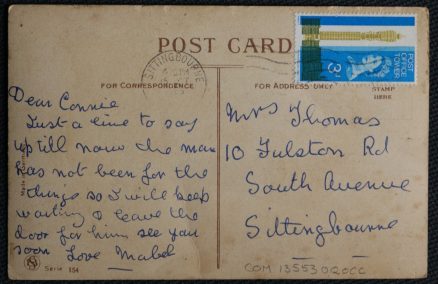 POST CARD
SITTINGBOURNE
POST
OFFICE
TOWER
3D
STAMP
HERE
FOR CORRESPONDENCE
Dear Connie
Just a line to say
uptill now the man
has not been for the
things so I will keep
waiting & leave the
door for him see you
soon Love Mabel
Serie 154
FOR ADDRESS ONLY
Mrs Thomas
10 Fulston Rd
South Avenue
Sittingbourne
COM 13553020CC